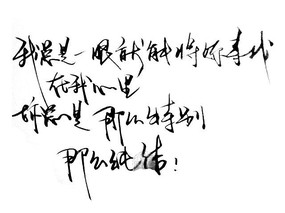 我总是一眼就能将你寻找
在我心里
你总是那么特别
那么纯洁！